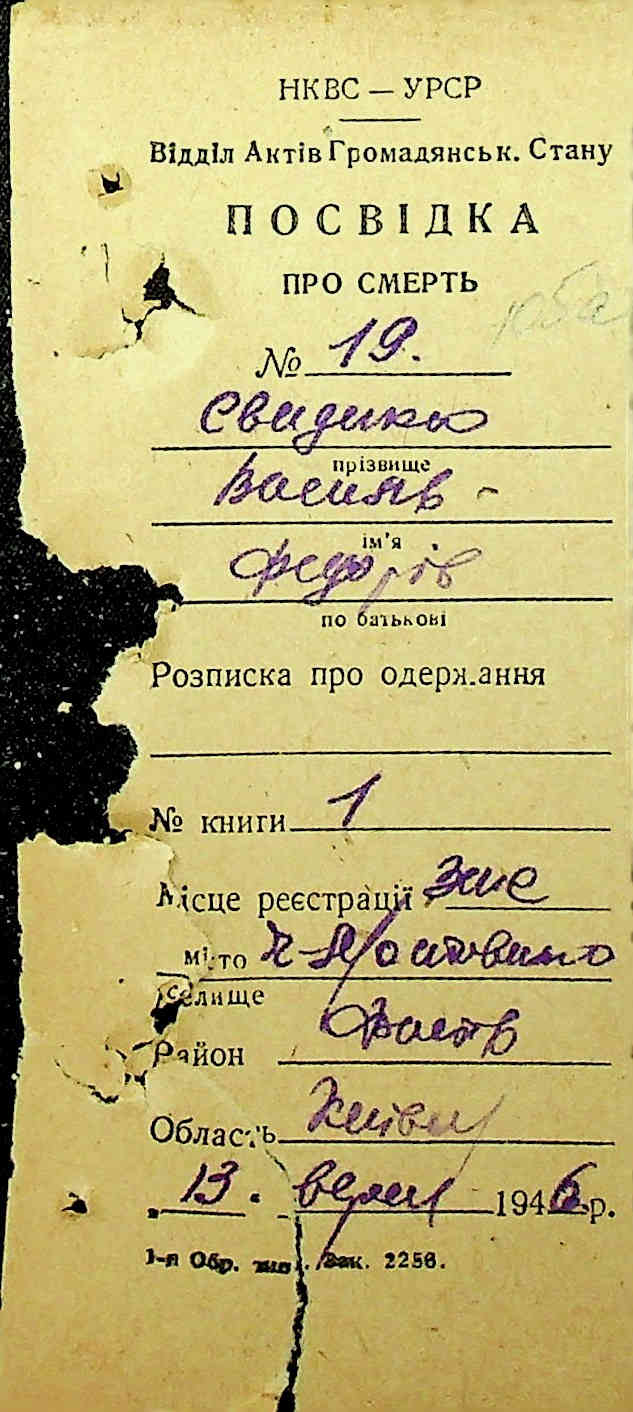 НКВС — УРСР
Відділ Актів Громадянськ. Стану
ПОСВІДКА
ПРО СМЕРТЬ
№ 19.
прізвище
Василь
ім'я
Федорів
по батькові
Розписка про одержання
№ книги 1
Місце реєстрації
місто
селище
Район Фастів
Область Київ
„13" верес 1946 р.
1-я Обр. тип. Зак. 2256.